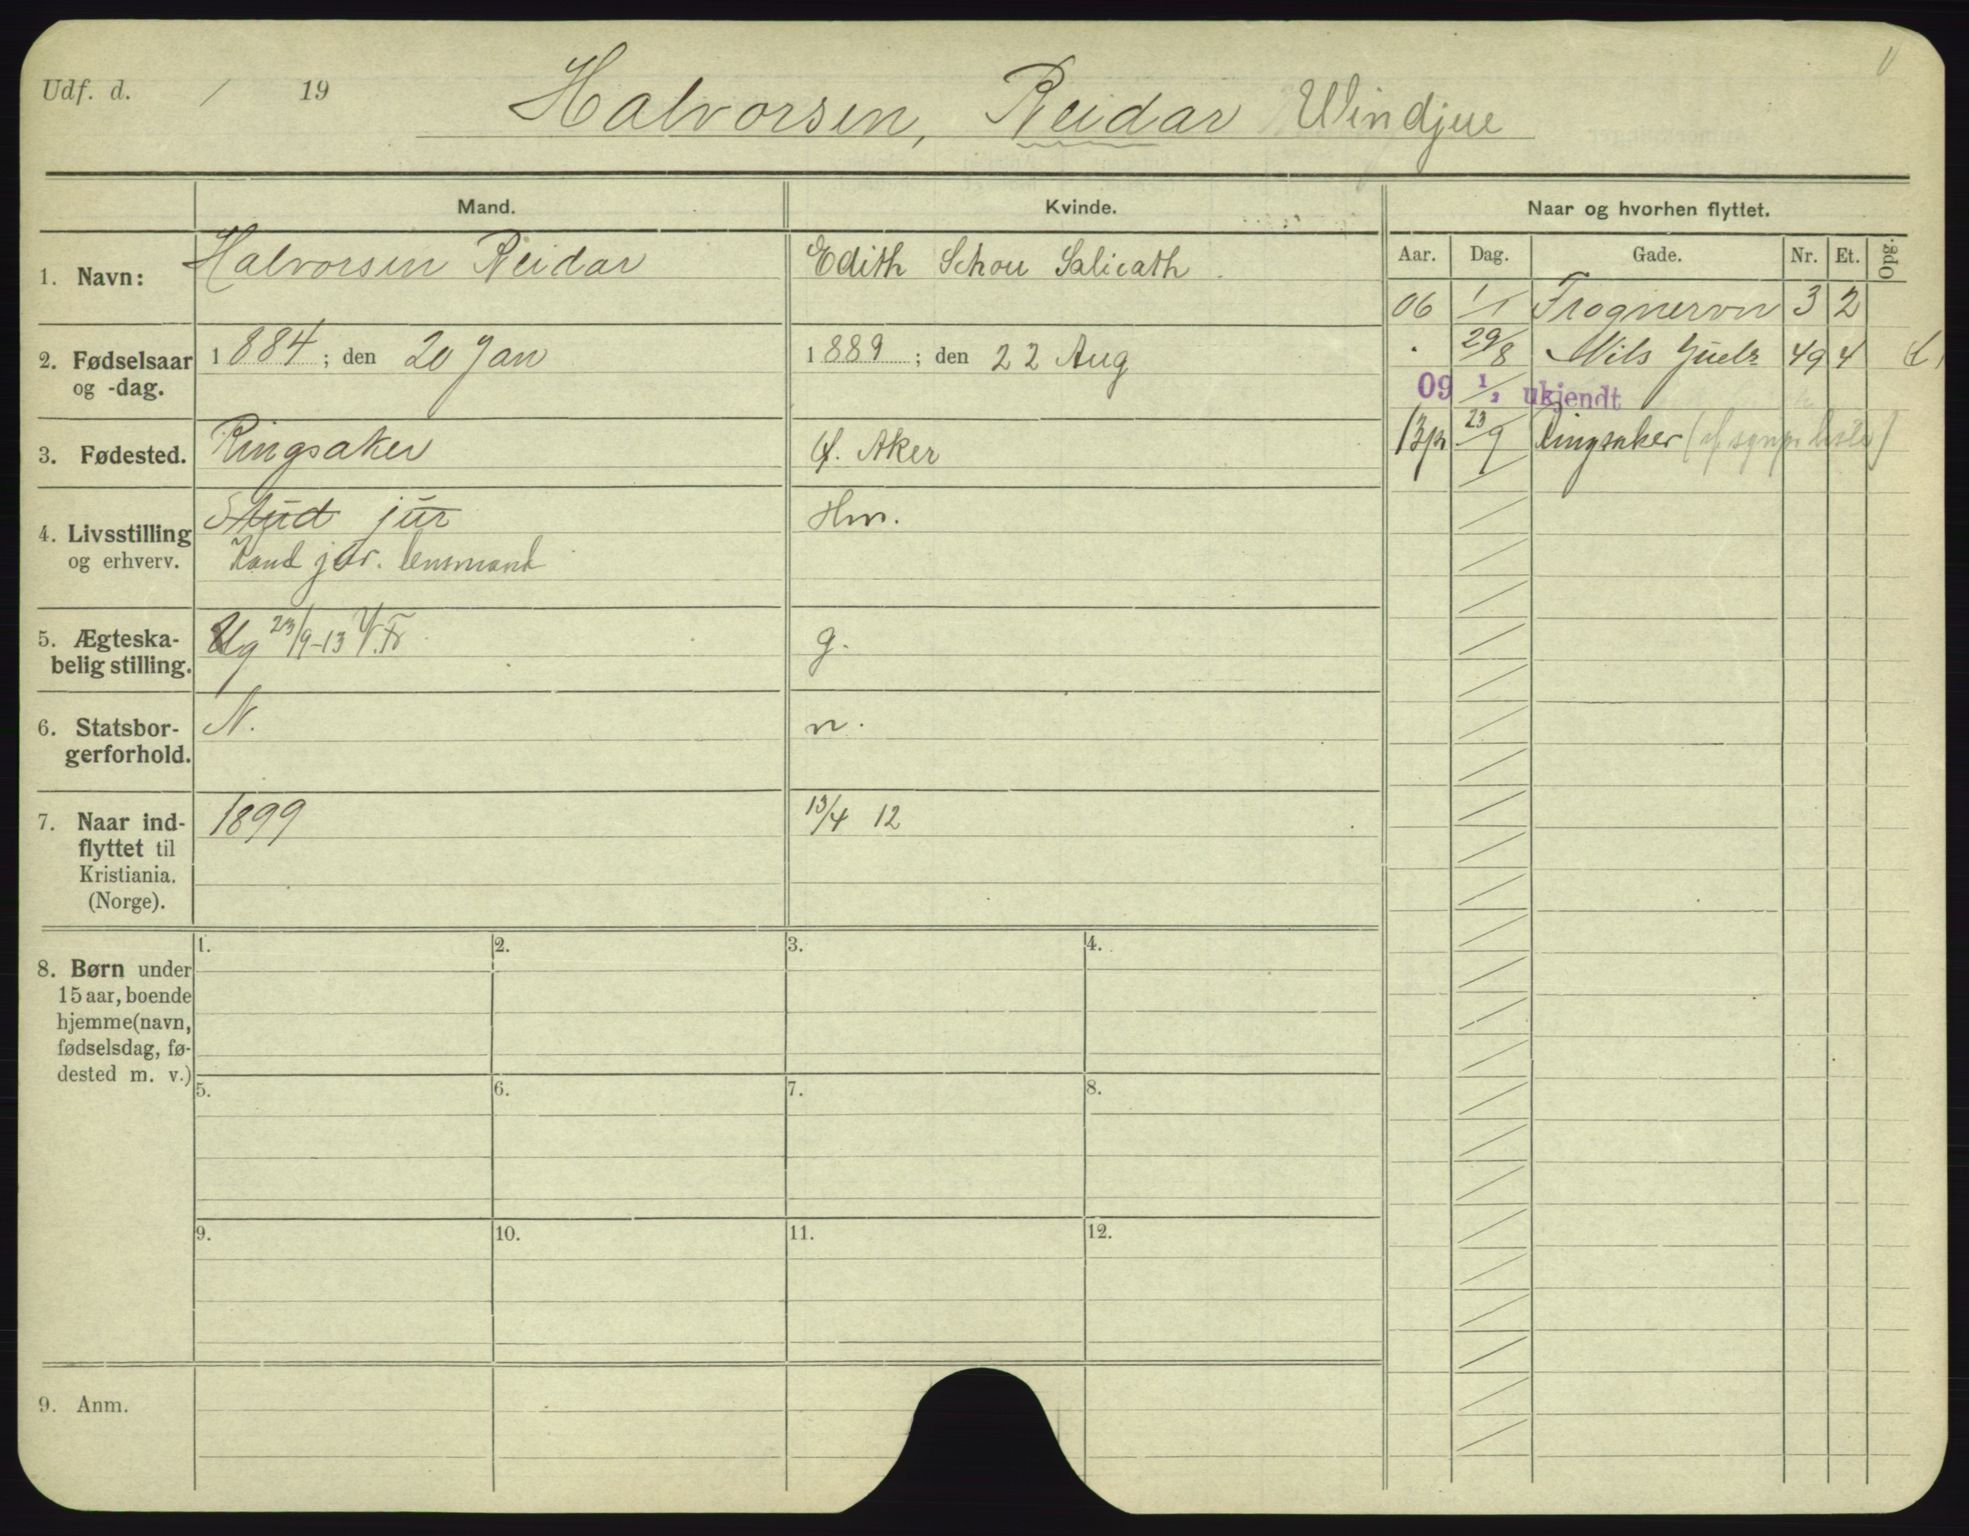 Udf. d. / 19
Halvorsen, Reidar Windjue
Mand. Kvinde. Naar og hvorhen flyttet.
Aar. Dag. Gade. Nr. Et. Opg.
1. Navn: Halvorsen Reidar Edith Schou Salicath
06 1/1 Frognervn 3 2
2. Fødselsaar og -dag. 1884; den 20 Jan 1889; den 22 Aug
" 29/8 Nils Juels 49 4
09 1/2 ukjendt
3. Fødested. Ringsaker Ø. Aker
13 23/9 Ringsaker
4. Livsstilling Stud jur Hm.
og erhverv. Kand jur. lensmand
5. Ægteska-
belig stilling. Ug 23/9-13 V. Fr g.
6. Statsbor-
gerforhold. N. n.
7. Naar ind-
flyttet til
Kristiania.
(Norge). 1899 13/4 12
8. Børn under
15 aar, boende
hjemme (navn,
fødselsdag, fø-
dested m. v.)
1. 2. 3. 4.
5. 6. 7. 8.
9. 10. 11. 12.
9. Anm.